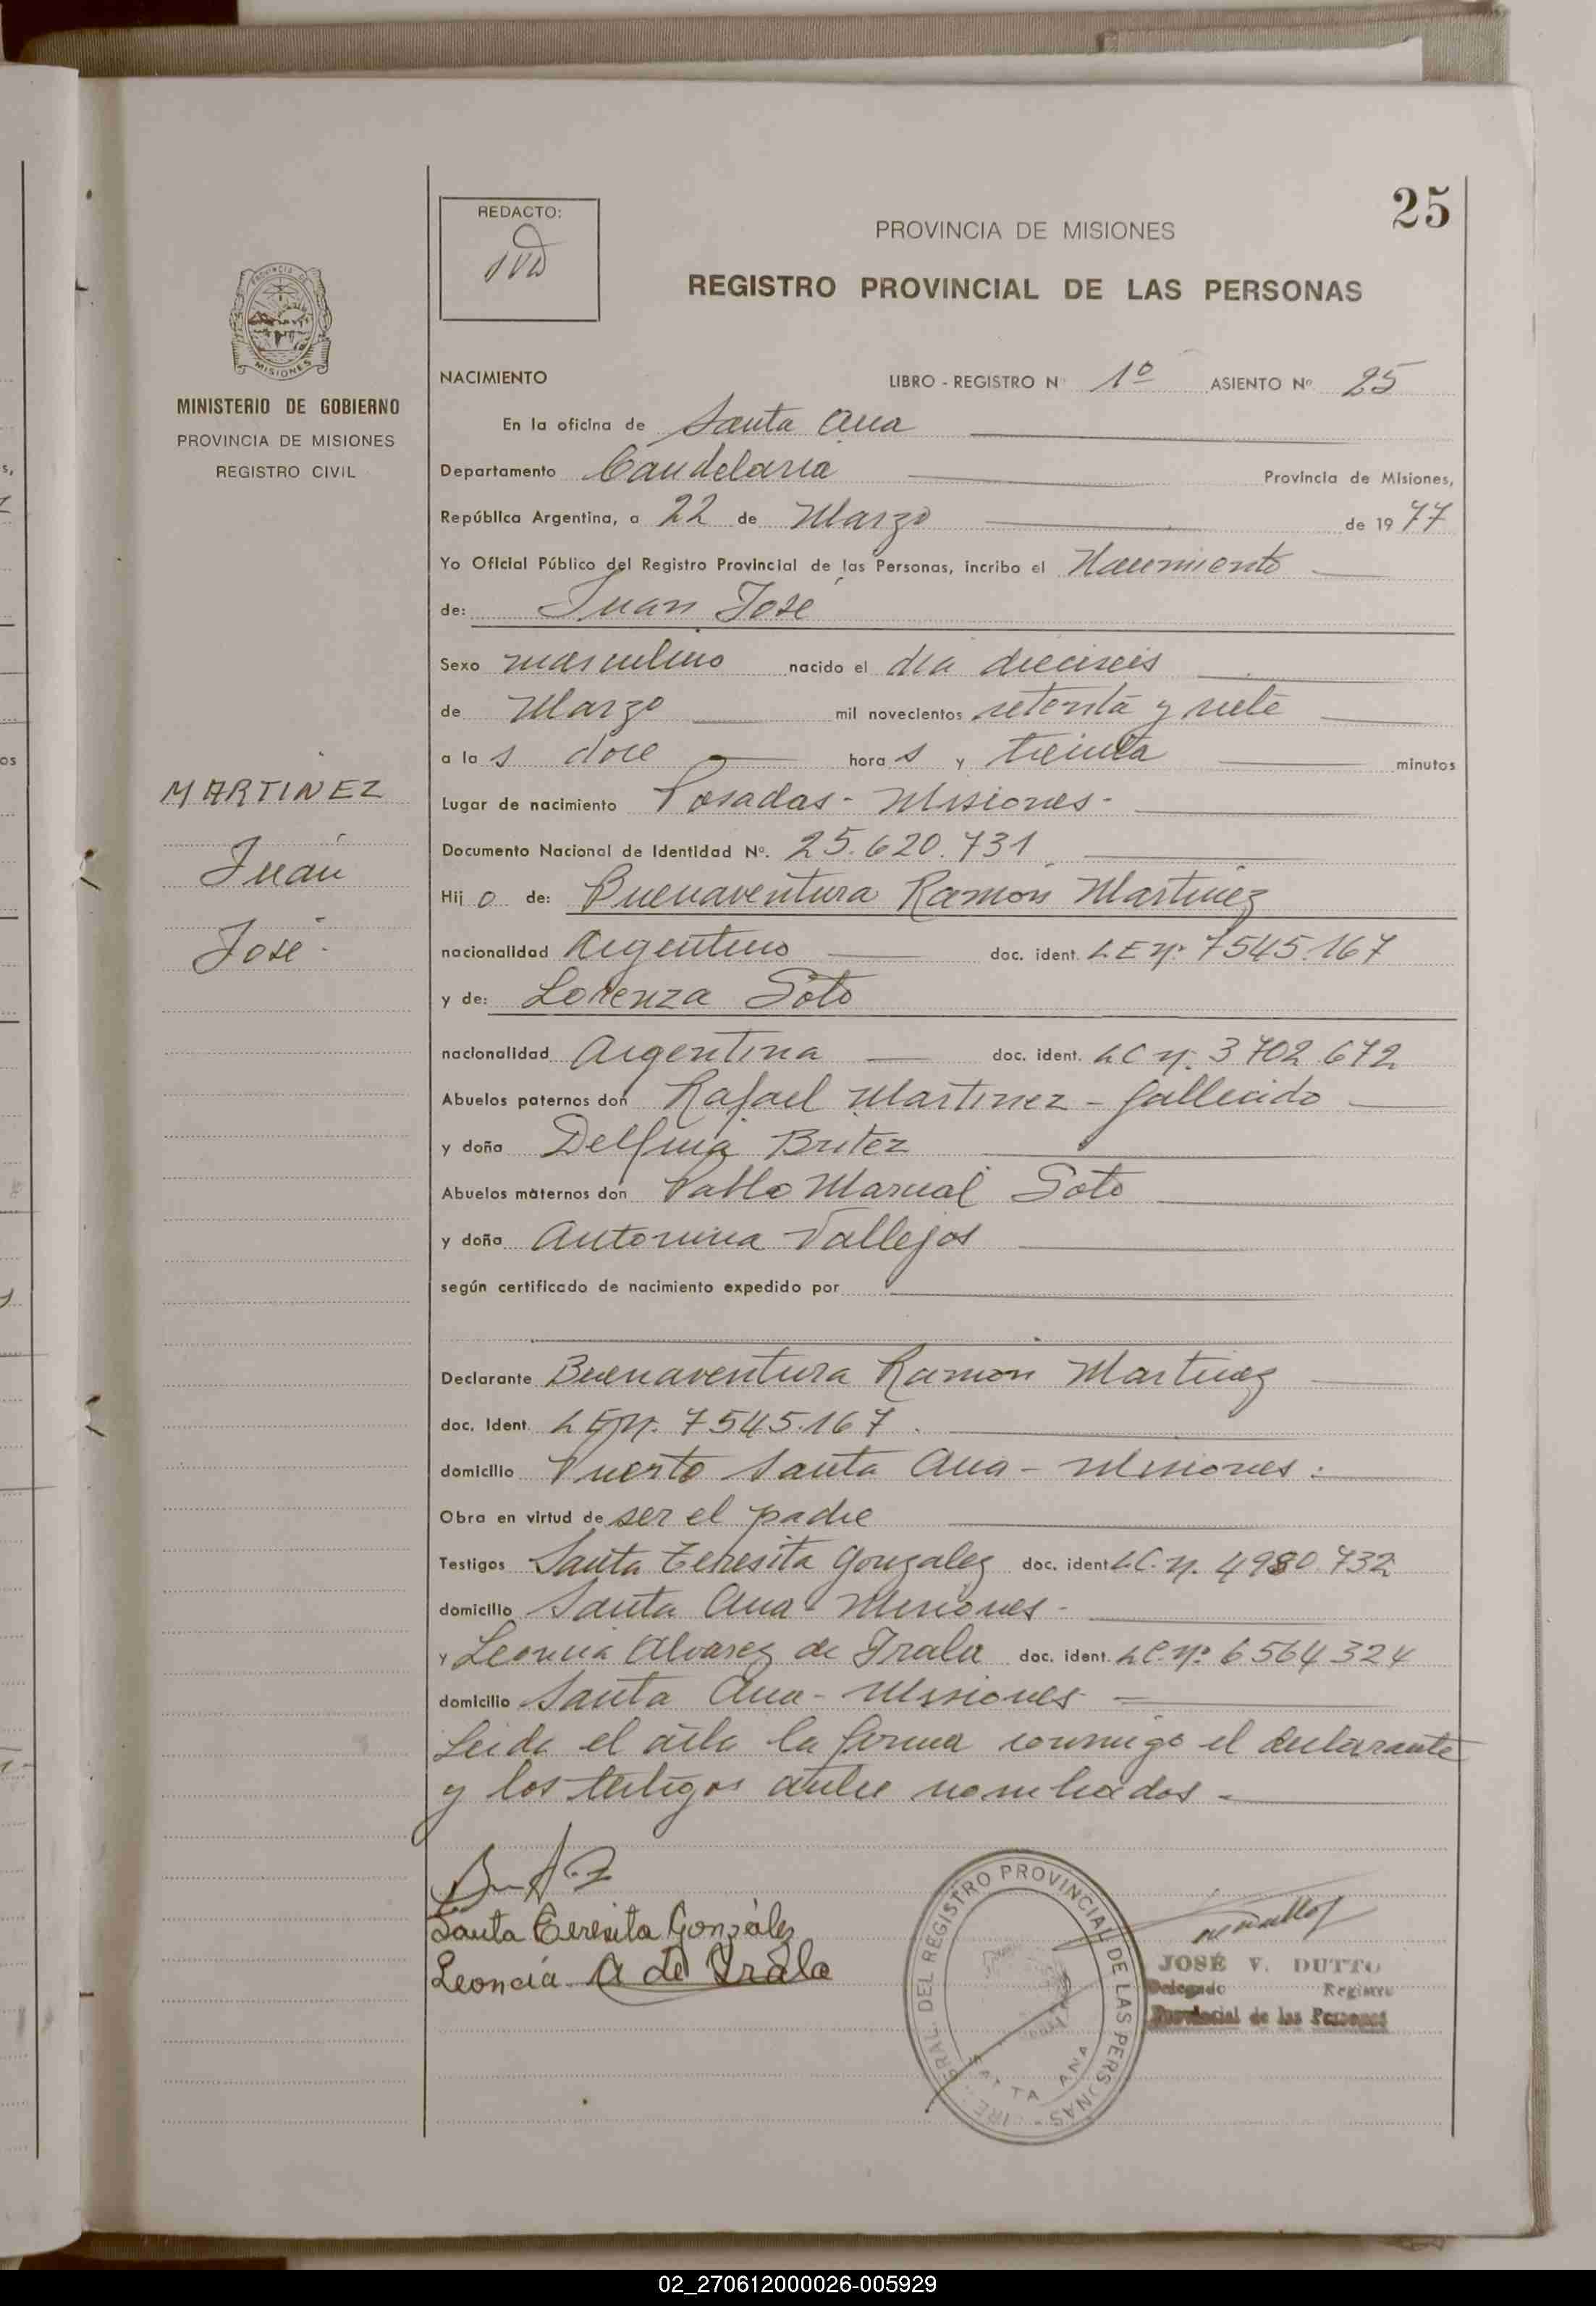 25
REDACTO:
PROVINCIA DE MISIONES
REGISTRO PROVINCIAL DE LAS PERSONAS
PROVINCIA DE
MISIONES
MINISTERIO DE GOBIERNO
PROVINCIA DE MISIONES
REGISTRO CIVIL
MARTINEZ
Juan
José
NACIMIENTO LIBRO - REGISTRO Nº 1º ASIENTO Nº 25
En la oficina de Santa Ana
Departamento Candelaria Provincia de Misiones,
República Argentina, a 22 de Marzo de 1977
Yo Oficial Público del Registro Provincial de las Personas, incribo el Nacimiento
de: Juan José
Sexo masculino nacido el dia dieciseis
de Marzo mil novecientos setenta y siete
a las doce horas y treinta minutos
Lugar de nacimiento Posadas - Misiones -
Documento Nacional de Identidad Nº. 25.620.731
Hijo de: Buenaventura Ramón Martinez
nacionalidad Argentino doc. ident. L E Nº 7545.167
y de: Lorenza Soto
nacionalidad Argentina doc. ident. L C Nº 3702.672
Abuelos paternos don Rafael Martinez - fallecido
y doña Delfina Britez
Abuelos maternos don Pablo Marcial Soto
y doña Antonina Vallejos
según certificado de nacimiento expedido por
Declarante Buenaventura Ramón Martinez
doc. Ident. L E Nº. 7545.167.
domicilio Puerto Santa Ana - Misiones.
Obra en virtud de ser el padre
Testigos Santa Teresita Gonzalez doc. ident L.C. Nº. 4980.732
domicilio Santa Ana - Misiones -
y Leoncia Alvarez de Irala doc. ident. L.C. Nº 6.564.324
domicilio Santa Ana - Misiones
Leida el acta la firma conmigo el declarante
y los testigos antes nombrados.
Santa Teresita González
Leoncia A de Irala
GRAL. DEL REGISTRO PROVINCIAL DE LAS PERSONAS
SANTA ANA
JOSÉ V. DUTTO
Delegado Registro
Provincial de las Personas
02_270612000026-005929